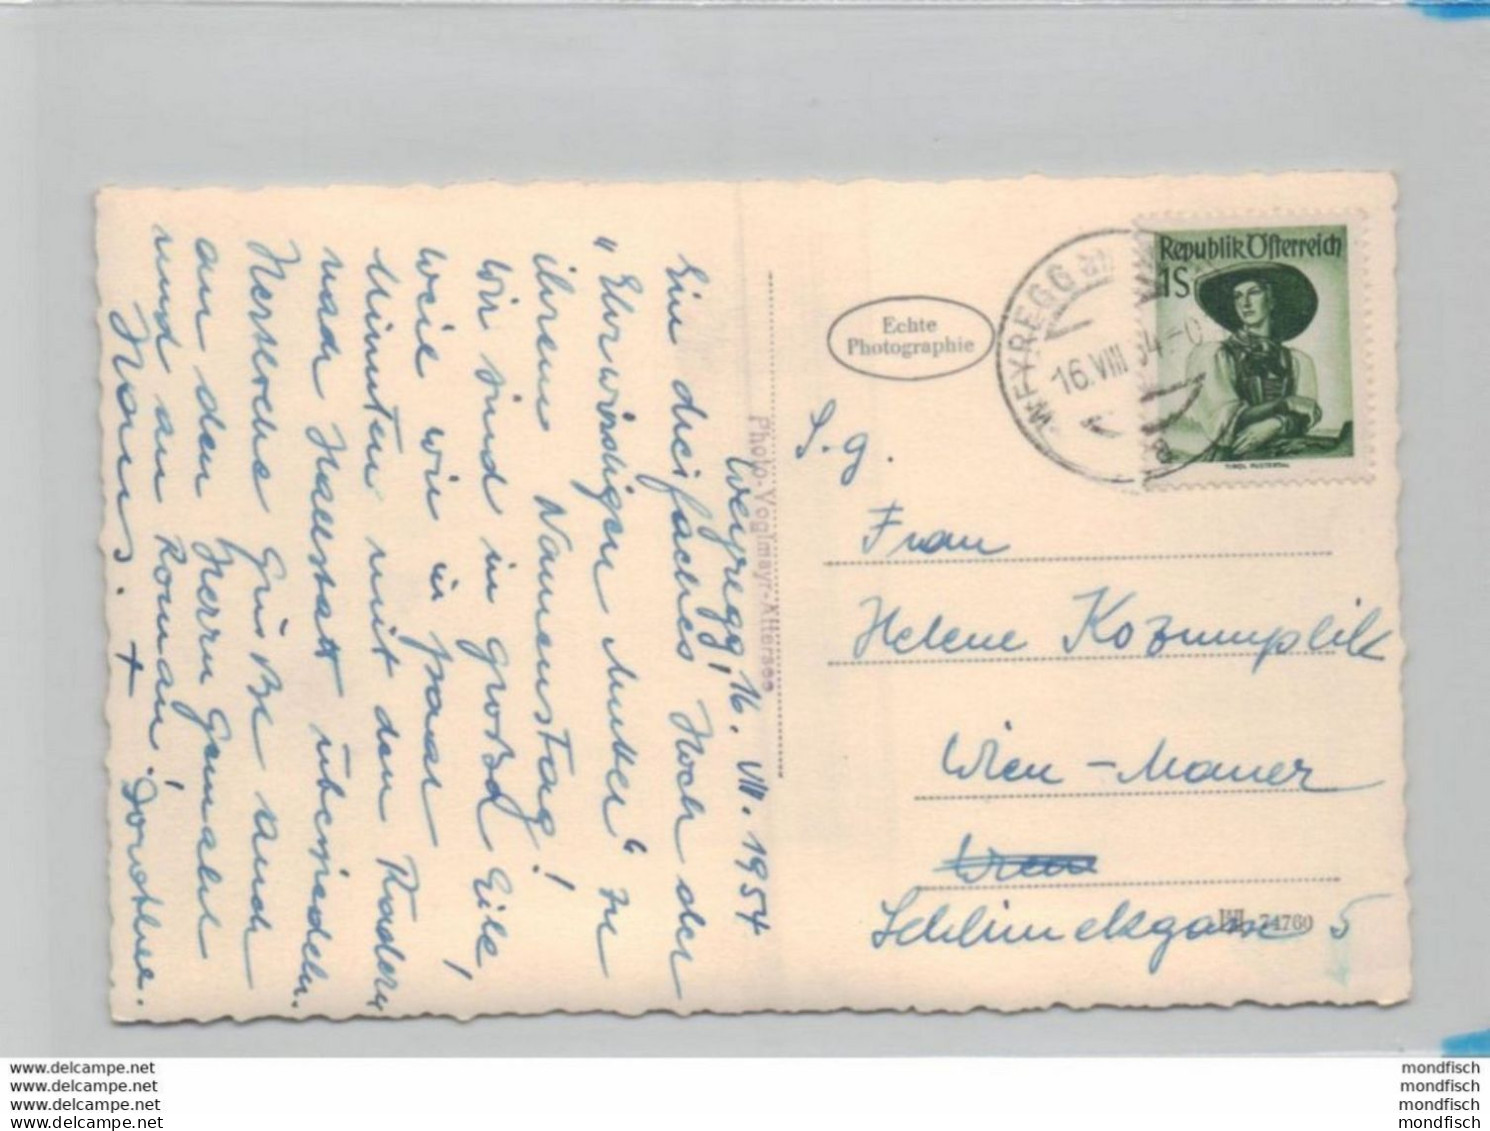 Weyregg, 16. VIII. 1954
Ein dreifaches Hoch der
"Ehrwürdigen Mutter" zu
ihrem Namenstag!
Wir sind in großer Eile
weil wir in paar
Minuten mit den Rädern
nach Hallstatt übersiedeln.
Herzliche Grüße auch
an den Herrn Gemahl
und an Roman! Dorothee.
Hans. +
Photo-Voglmayr-Attersee
Echte
Photographie
WEYREGG AM
16.VIII 54-0
Republik Österreich
1S
TIROL PUSTERTAL
S.g.
Frau
Helene Kozumplik
Wien-Mauer
Wien
Schlimekgasse 5
74760
www.delcampe.net
www.delcampe.net
www.delcampe.net
www.delcampe.net
mondfisch
mondfisch
mondfisch
mondfisch